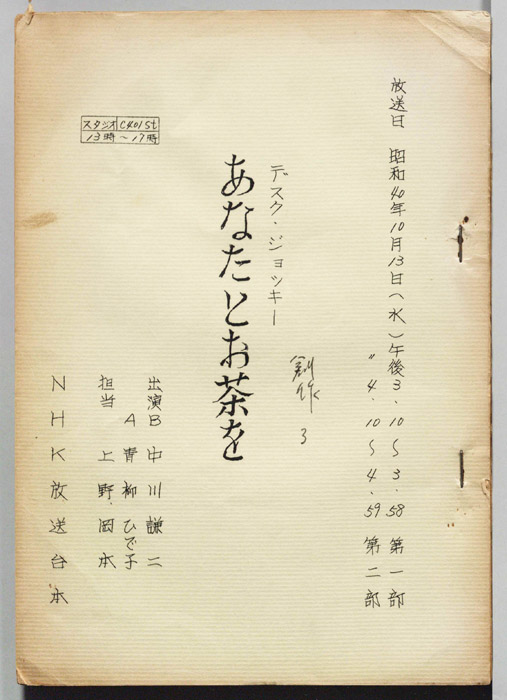 放送日 昭和40年10月13日(水)午後3.10〜3.58 第一部
〃 4.10〜4.59 第二部
創作 3
デスク・ジョッキー
あなたとお茶を
スタジオ C401St
13時〜17時
出演B 中川謙二
A 青柳ひで子
担当 上野.岡本
NHK放送台本